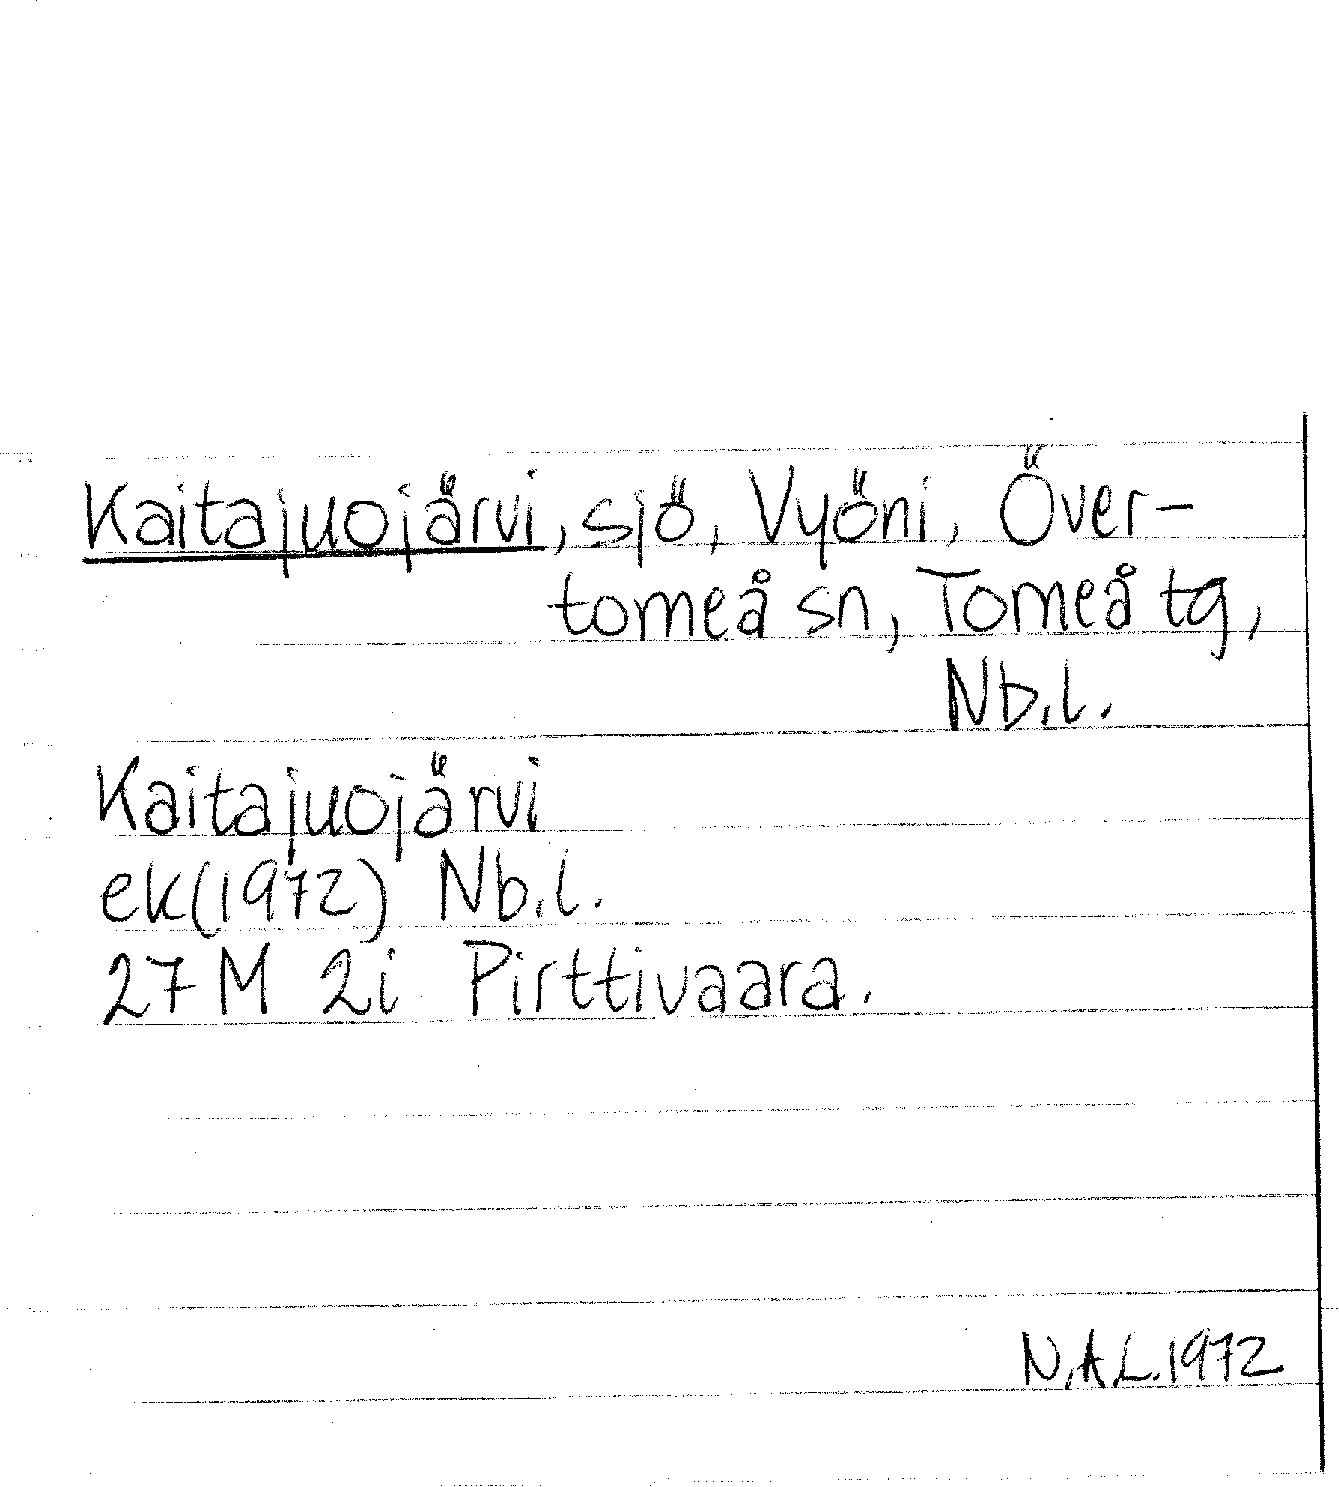 Kaitajuojärvi, sjö, Vyöni, Över-
torneå sn, Torneå tg,
Nb.l.
Kaitajuojärvi
ek(1972) Nb.l.
27M 2i Pirttivaara.
N.A.L.1972